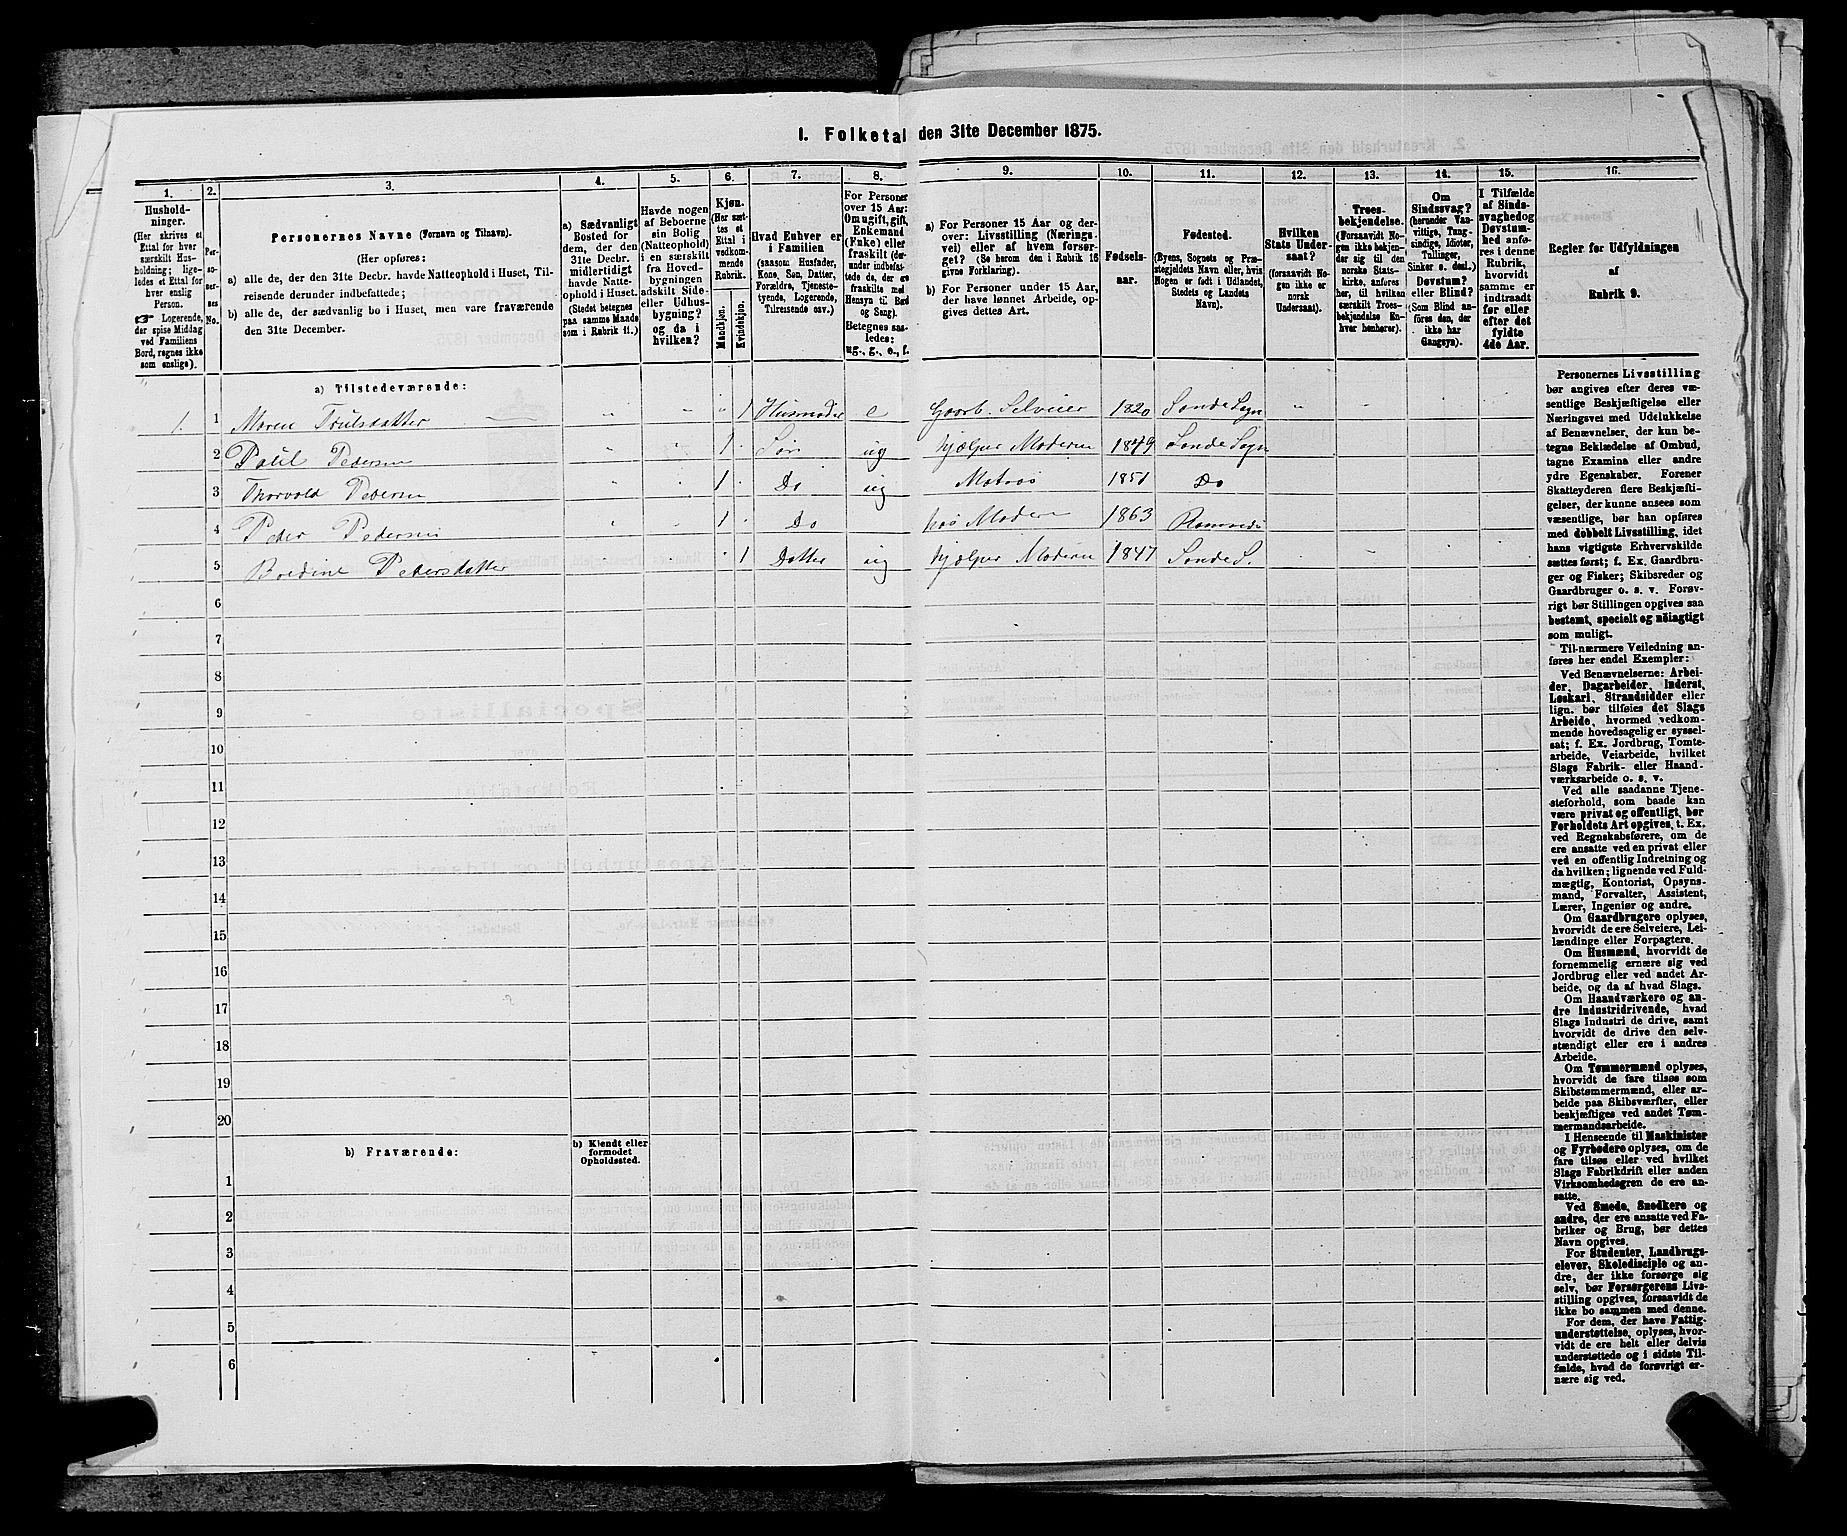 1. Folketal den 31te December 1875.
1.
Hushold-
ninger.
(Her skrives et
Ettal for hver
særskilt Hus-
holdning; lige-
ledes et Ettal for
hver enslig
Person.
☞ Logerende,
der spise Middag
ved Familiens
Bord, regnes ikke
som enslige).
2.
Per-
so-
ner-
nes
No.
3.
Personernes Navne (Fornavn og Tilnavn).
(Her opføres:
a) alle de, der den 31te Decbr. havde Natteophold i Huset, Til-
reisende derunder indbefattede;
b) alle de, der sædvanlig bo i Huset, men vare fraværende
den 31te December.
4.
a) Sædvanligt
Bosted for
dem, der den
31te Decbr.
midlertidigt
havde Natte-
ophold i Huset.
(Stedet betegnes
paa samme Maade
som i Rubrik 11.)
5.
Havde nogen
af Beboerne
sin Bolig
(Natteophold)
i en særskilt
fra Hoved-
bygningen
adskilt Side-
eller Udhus-
bygning?
og da i
hvilken?
6.
Kjøn.
(Her sæt-
tes et
Ettal i
vedkom-
mende
Rubrik.
Mandkjøn.
Kvindekjøn.
7.
Hvad Enhver er
i Familien
(saasom Husfader,
Kone, Søn, Datter,
Forældre, Tjeneste-
tyende, Logerende,
Tilreisende osv.)
8.
For Personer
over 15 Aar:
Om ugift, gift,
Enkemand
(Enke) eller
fraskilt (der-
under indbefat-
tede de, der ere
fraskilte med
Hensyn til Bord
og Seng).
Betegnes saa-
ledes:
ug., g., e., f.
9.
a) For Personer 15 Aar og der-
over: Livsstilling (Nærings-
vei) eller af hvem forsør-
get? (Se herom den i Rubrik 16
givne Forklaring).
b) For Personer under 15 Aar,
der have lønnet Arbeide, op-
gives dettes Art.
10.
Fødsels-
aar.
11.
Fødested.
(Byens, Sognets og Præ-
stegjeldets Navn eller, hvis
Nogen er født i Udlandet,
Stedets og Landets
Navn).
12.
Hvilken
Stats Under-
saat?
(forsaavidt No-
gen ikke er
norsk
Undersaat).
13.
Troes-
bekjendelse.
(Forsaavidt No-
gen ikke bekjen-
der sig til den
norske Stats-
kirke, anføres
her, til hvilken
særskilt Troes-
bekjendelse En-
hver henhører).
14.
Om
Sindssvag?
(herunder Van-
vittige, Tung-
sindige, Idioter,
Tullinger,
Sinker o. desl.)
Døvstum?
eller Blind?
(Som Blind an-
føres den, der
ikke har
Gangsyn).
15.
I Tilfælde
af Sinds-
svaghed og
Døvstum-
hed anfø-
res i denne
Rubrik,
hvorvidt
samme er
indtraadt
før eller
efter det
fyldte
4de Aar.
16.
Regler for Udfyldningen
af
Rubrik 9.
a) Tilstedeværende:
1. 1 Maren Trulsdatter " " " 1 Husmoder e Gaarb. Selveier 1820 Sande Sogn " "
2 Paul Pedersen " " 1 Søn ug hjælper Moderen 1849 Sande Sogn
3 Thorvold Pedersen " 1 Do ug Matros 1851 Do
4 Peder Pedersen " 1 Do hos Moderen 1863
5 Bredine Pedersdatter " 1 Datter ug hjælper Moderen 1847 Sande S.
6
7
8
9
10
11
12
13
14
15
16
17
18
19
20
b) Fraværende:
b) Kjendt eller
formodet
Opholdssted.
1
2
3
4
5
6
Personernes Livsstilling
bør angives efter deres væ-
sentlige Beskjæftigelse eller
Næringsvei med Udelukkelse
af Benævnelser, der kun be-
tegne Beklædelse af Ombud,
tagne Examina eller andre
ydre Egenskaber. Forener
Skatteyderen flere Beskjæfti-
gelser, der kunne ansees som
væsentlige, bør han opføres
med dobbelt Livsstilling, idet
hans vigtigste Erhvervskilde
sættes først; f. Ex. Gaardbru-
ger og Fisker; Skibsreder og
Gaardbruger o. s. v. Forøv-
rigt bør Stillingen opgives saa
bestemt, specielt og nøiagtigt
som muligt.
Til nærmere Veiledning an-
føres her endel Exempler:
Ved Benævnelserne: Arbei-
der, Dagarbeider, Inderst,
Løskarl, Strandsidder eller
lign. bør tilføies det Slags
Arbeide, hvormed vedkom-
mende hovedsagelig er syssel-
sat; f. Ex. Jordbrug, Tomte-
arbeide, Veiarbeide, hvilket
Slags Fabrik- eller Haand-
værksarbeide o. s. v.
Ved alle saadanne Tjene-
steforhold, som baade kan
være privat og offentligt, bør
Forholdets Art opgives, t. Ex.
ved Regnskabsførere, om de
ere ansatte ved en privat eller
ved en offentlig Indretning og
da hvilken; lignende ved Fuld-
mægtig, Kontorist, Opsyns-
mand, Forvalter, Assistent,
Lærer, Ingeniør og andre.
Om Gaardbrugere oplyses,
hvorvidt de ere Selveiere, Lei-
lændinge eller Forpagtere.
Om Husmænd, hvorvidt de
fornemmelig ernære sig ved
Jordbrug eller ved andet Ar-
beide, og da af hvad Slags.
Om Haandværkere og an-
dre industridrivende, hvad
Slags Industri de drive, samt
hvorvidt de drive den selv-
stændigt eller ere i andres
Arbeide.
Om Tømmermænd oplyses,
hvorvidt de fare tilsøs som
Skibstømmermænd, eller ar-
beide paa Skibsværfter, eller
beskjæftiges ved andet Tøm-
mermandsarbeide.
I Henseende til Maskinister
og Fyrbødere oplyses, om de
fare tilsøs eller ved hvilket
Slags Fabrikdrift eller anden
Virksomhedsgren de ere an-
satte.
Ved Smede, Snedkere og
andre, der ere ansatte ved Fa-
briker og Brug, bør dettes
Navn opgives.
For Studenter, Landbrugs-
elever, Skoledisciple og an-
dre, der ikke forsørge sig
selv, bør Forsørgerens Livs-
stilling opgives, forsaavidt de
ikke bo sammen med denne.
For dem, der have Fattig-
understøttelse, oplyses, hvor-
vidt de ere helt eller delvis
understøttede og i sidste Til-
fælde, hvad de forøvrigt er-
nære sig ved.